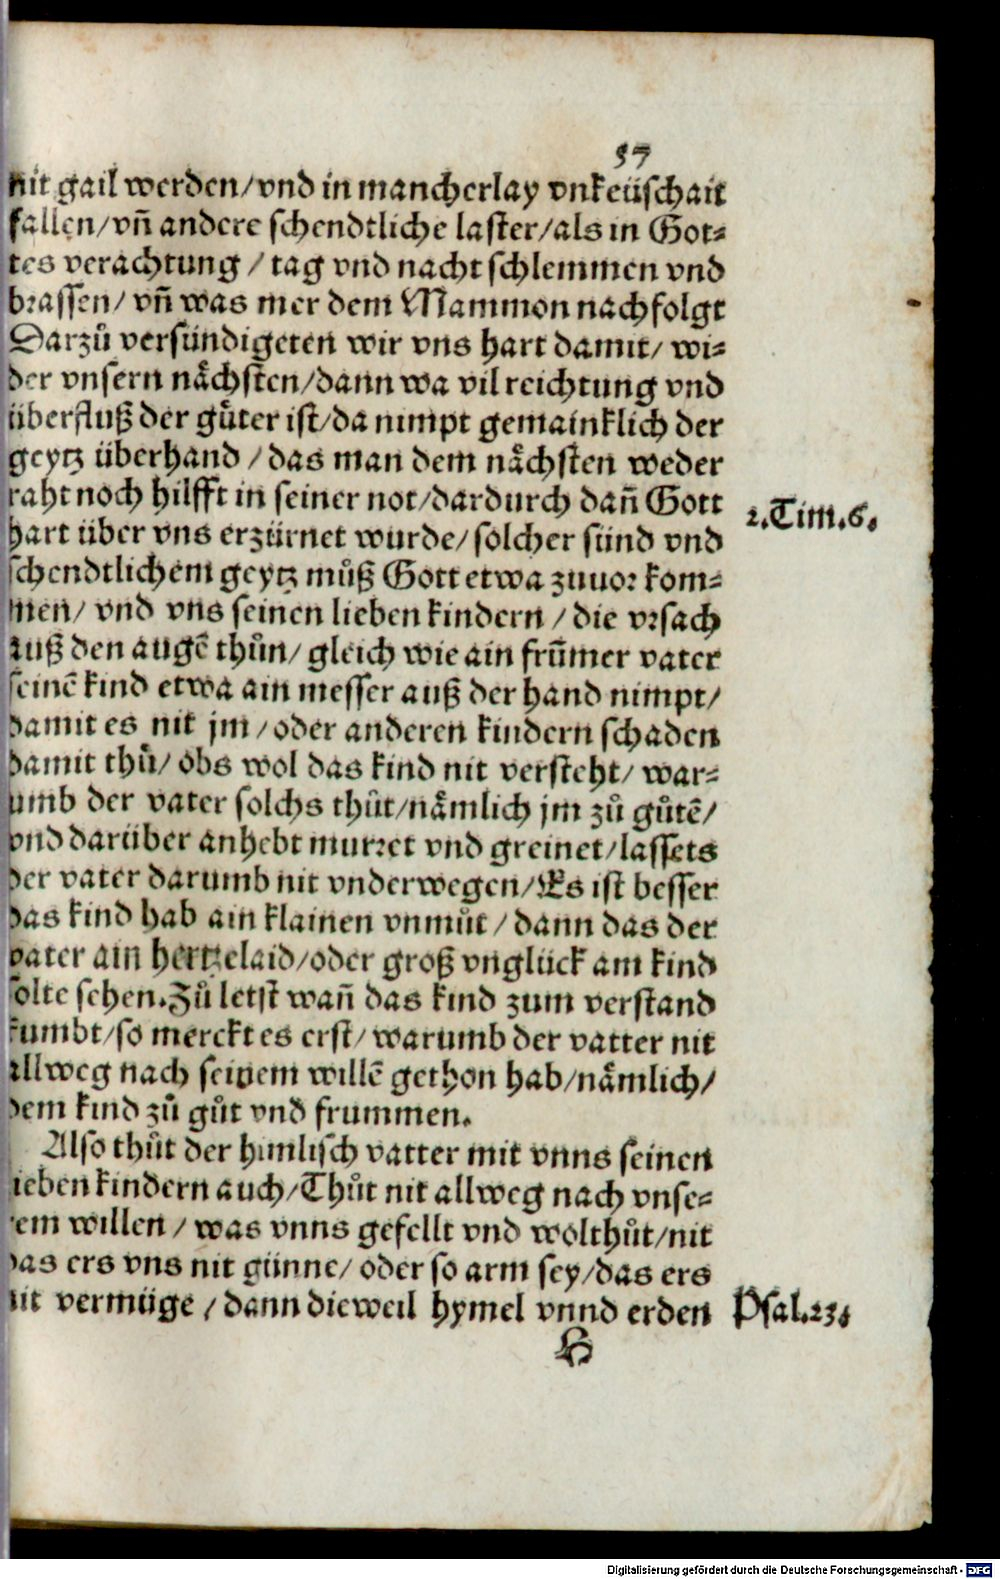 57
nit gail werden/vnd in mancherlay vnkeüschait
fallen/vñ andere schendtliche laster/als in Got⸗
tes verachtung/tag vnd nacht schlemmen vnd
brassen/vñ was mer dem Mammon nachfolgt
Darzů versündigeten wir vns hart damit/wi⸗
der vnsern nächsten/dann wa vil reichtung vnd
überfluß der gůter ist/da nimpt gemainklich der
geytz überhand/das man dem nächsten weder
raht noch hilfft in seiner not/dardurch dañ Gott
2.Tim.6.
hart über vns erzürnet wurde/solcher sünd vnd
schendtlichem geytz můß Gott etwa zuuor kom⸗
men/vnd vns seinen lieben kindern/die vrsach
auß den augē thůn/gleich wie ain frum̄er vater
seinē kind etwa ain messer auß der hand nimpt/
damit es nit jm/oder anderen kindern schaden
damit thů/obs wol das kind nit versteht/war⸗
umb der vater solchs thůt/nämlich jm zů gůtē/
vnd darüber anhebt murret vnd greinet/lassets
der vater darumb nit vnderwegen/Es ist besser
das kind hab ain klainen vnmůt/dann das der
vater ain hertzelaid/oder groß vnglück am kind
solte sehen.Zů letst wañ das kind zum verstand
kumbt/so merckt es erst/warumb der vatter nit
allweg nach seinem willē gethon hab/nämlich/
dem kind zů gůt vnd frummen.
Also thůt der himlisch vatter mit vnns seinen
lieben kindern auch/Thůt nit allweg nach vnse⸗
rem willen/was vnns gefellt vnd wolthůt/nit
das ers vns nit günne/oder so arm sey/das ers
nit vermüge/dann dieweil hymel vnnd erden
Psal.23.
H
Digitalisierung gefördert durch die Deutsche Forschungsgemeinschaft - DFG